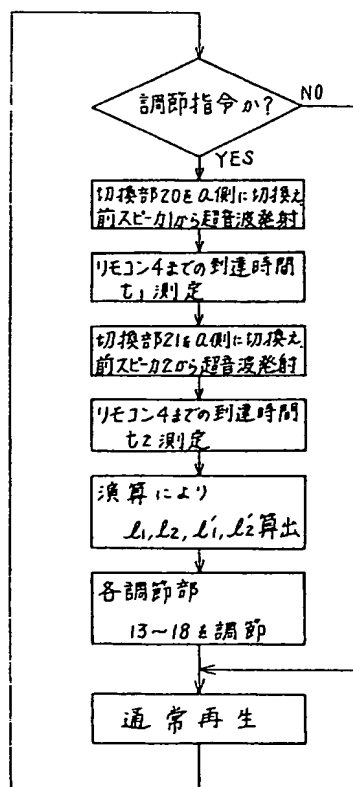 調節指令か?
NO
YES
切換部20をa側に切換え
前スピーカ1から超音波発射
リモコン4までの到達時間
t1 測定
切換部21をa側に切換え
前スピーカ2から超音波発射
リモコン4までの到達時間
t2 測定
演算により
l1, l2, l'1, l'2 算出
各調節部
13~18を調節
通常再生